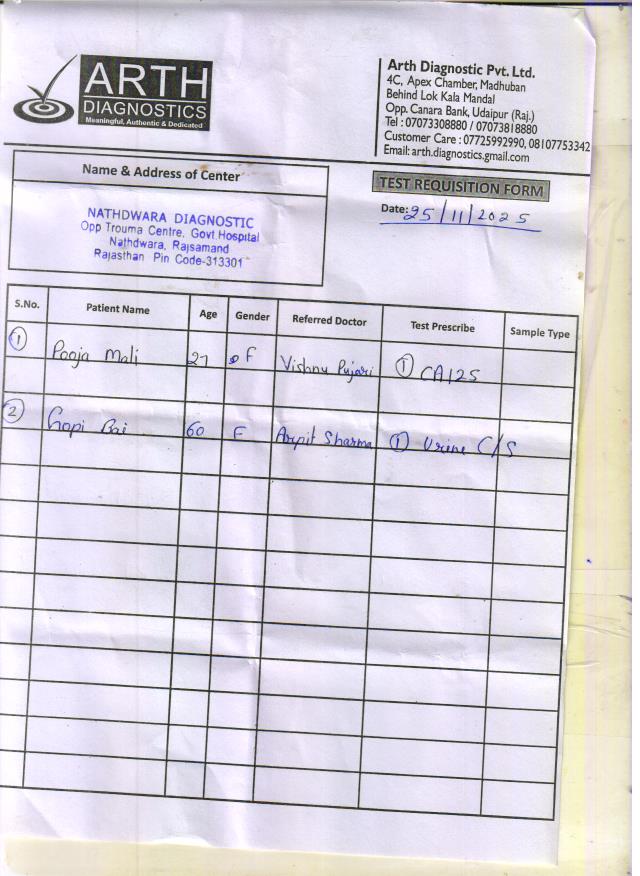 ARTH
DIAGNOSTICS
Meaningful, Authentic & Dedicated
Arth Diagnostic Pvt. Ltd.
4C, Apex Chamber, Madhuban
Behind Lok Kala Mandal
Opp. Canara Bank, Udaipur (Raj.)
Tel : 07073308880 / 07073818880
Customer Care : 07725992990, 08107753342
Email: arth.diagnostics.gmail.com
Name & Address of Center
NATHDWARA DIAGNOSTIC
Opp Trouma Centre, Govt Hospital
Nathdwara, Rajsamand
Rajasthan Pin Code-313301
TEST REQUISITION FORM
Date: 25/11/2025
S.No. Patient Name Age Gender Referred Doctor Test Prescribe Sample Type
1 Pooja Mali 27 F Vishnu Pujari 1 CA125
2 Gopi Bai 60 F Arpit Sharma 1 Urine C/S